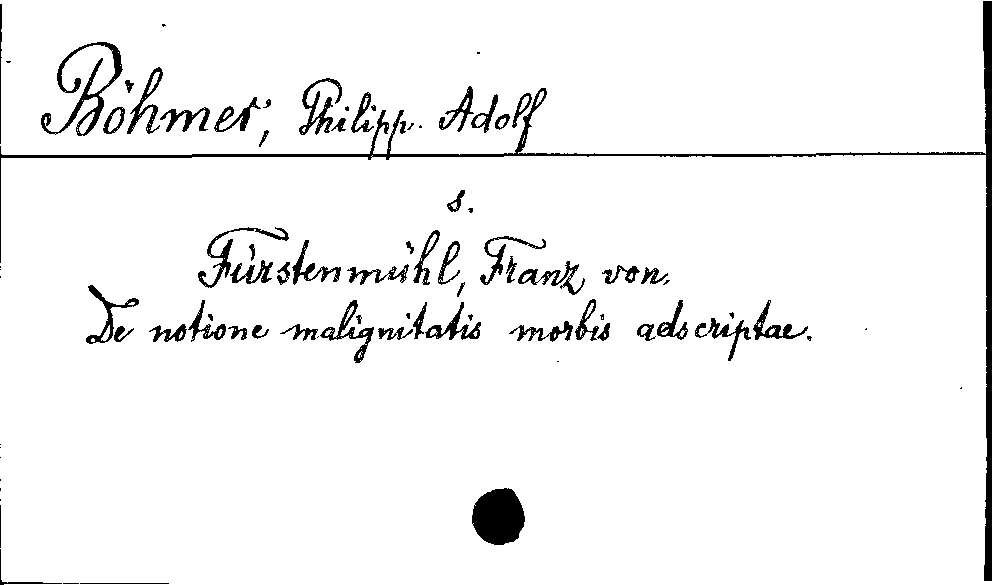 Böhmer, Philipp. Adolf
s.
Fürstenmühl, Franz von.
De notione malignitatis morbis adscriptae.